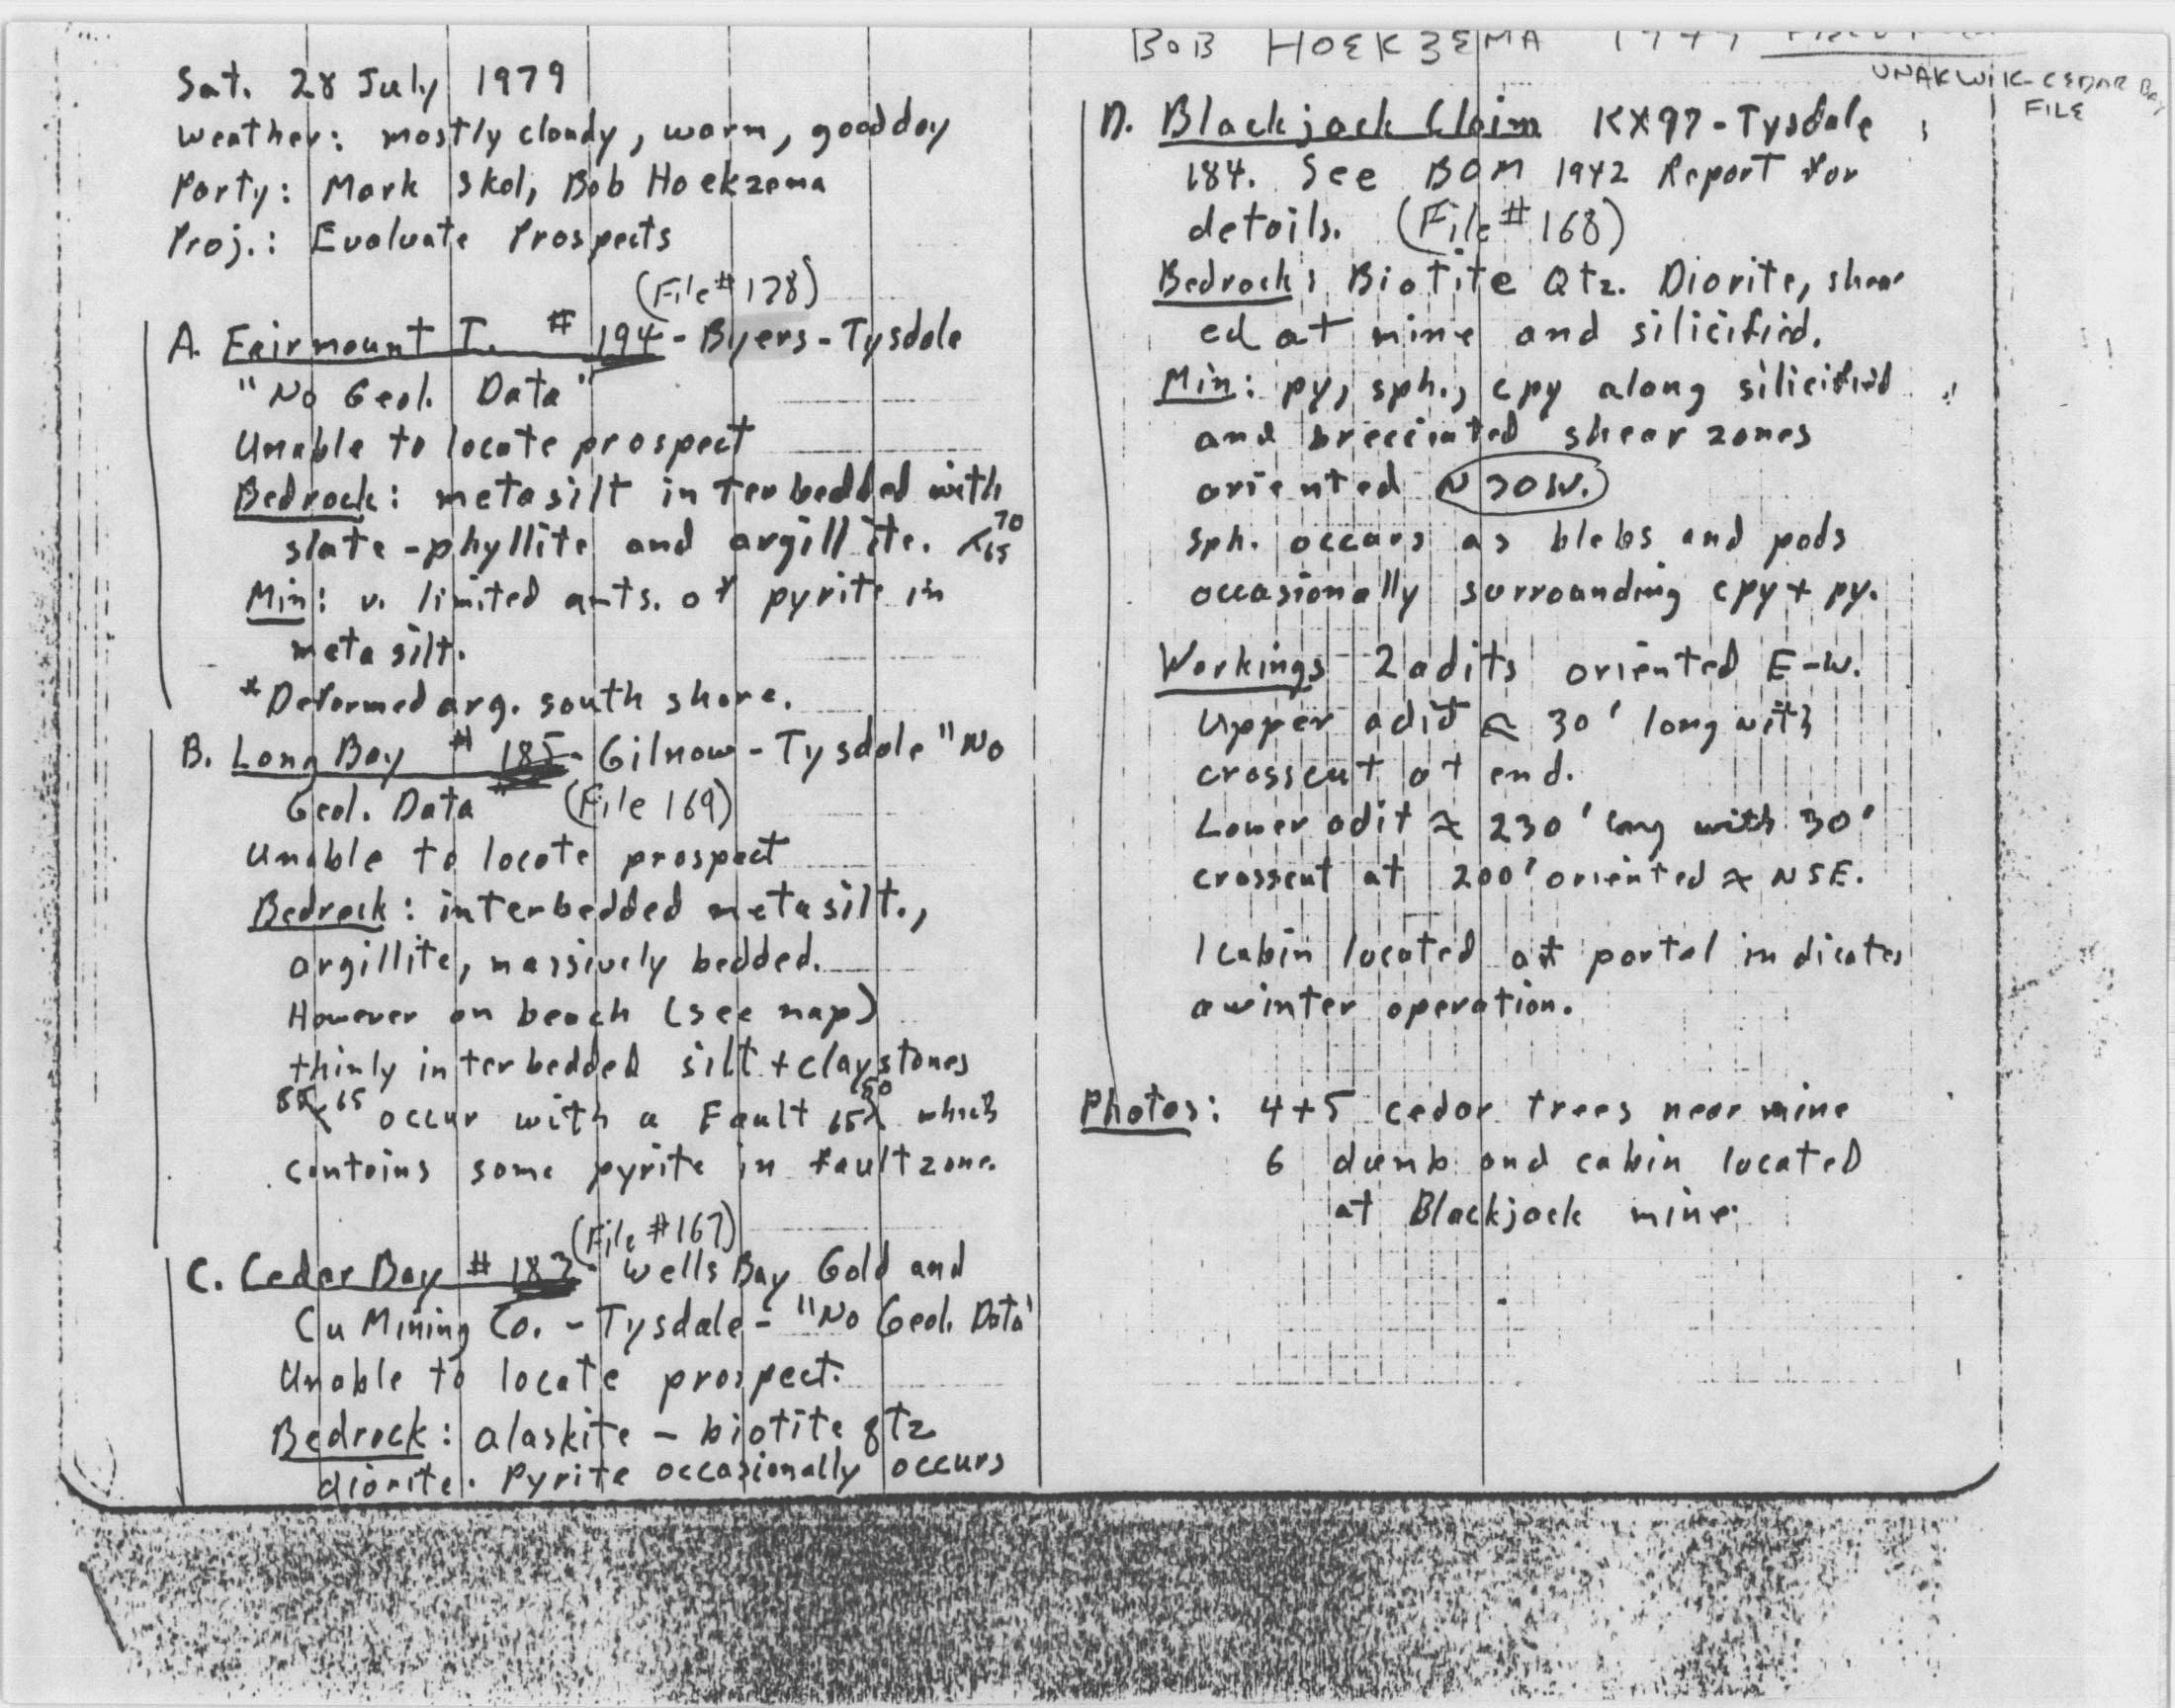 Sat. 28 July 1979
Weather: mostly cloudy, warm, good day
Party: Mark Skol, Bob Hoekzema
Proj.: Evaluate Prospects
(File # 178)
A. Fairmount I. # 194 - Byers - Tysdale
"No Geol. Data"
Unable to locate prospect
Bedrock: metasilt interbedded with
slate-phyllite and argillite. 70 65
Min: v. limited amts. of pyrite in
metasilt.
*Deformed arg. south shore.
B. Long Bay # 185 - Gilnow - Tysdale "No
Geol. Data" (File 169)
Unable to locate prospect
Bedrock: interbedded metasilt.,
argillite, massively bedded.
However on beach (see map)
thinly interbedded silt + claystones
65 occur with a Fault 65 which
contains some pyrite in fault zone.
(File #167)
C. Cedar Bay # 183 - Wells Bay Gold and
Cu Mining Co. - Tysdale - "No Geol. Data"
Unable to locate prospect.
Bedrock: alaskite - biotite qtz
diorite. Pyrite occasionally occurs
BOB HOEKZEMA 1979
UNAKWIK-CEDAR BAY
FILE
D. Blackjack Claim KX97 - Tysdale
184. See BOM 1942 Report for
details. (File # 168)
Bedrock: Biotite Qtz. Diorite, shear
ed at mine and silicified.
Min: py, sph., cpy along silicified
and brecciated shear zones
oriented N70W.
sph. occurs as blebs and pods
occasionally surrounding cpy + py.
Workings 2 adits oriented E-W.
Upper adit ≈ 30' long with
crosscut at end.
Lower adit ≈ 230' long with 30'
crosscut at 200' oriented ≈ N5E.
1 cabin located at portal indicates
a winter operation.
Photos: 4+5 cedar trees near mine
6 dump and cabin located
at Blackjack mine.